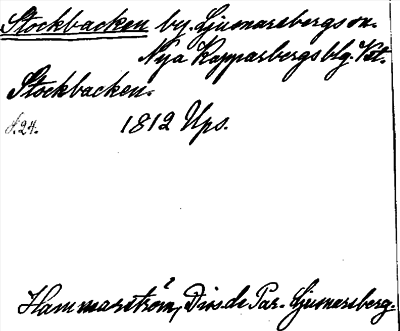 Stockbacken by. Ljusnarsbergs sn.
Nya Kopparbergs blg. Vst.
Stockbacken.
S. 24. 1812 Ups.
Hammarström, Diss. de Par. Ljusnarsberg.